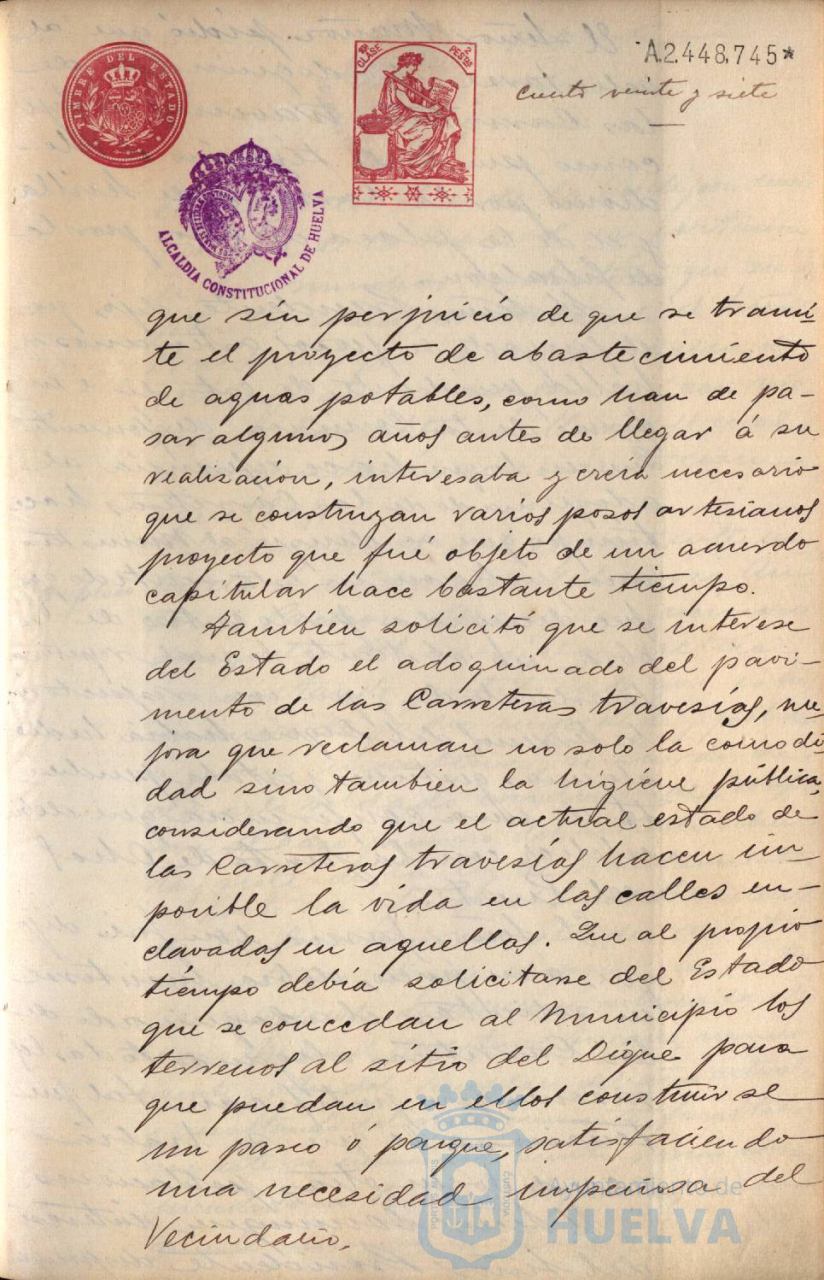 TIMBRE DEL ESTADO
10ª CLASE
2 PESTAS
A.2.448.745*
ciento veinte y siete
ALCALDIA CONSTITUCIONAL DE HUELVA
que sin perjuicio de que se trami-
te el proyecto de abastecimiento
de aguas potables, como han de pa-
sar algunos años antes de llegar á su
realisación, interesaba y creia necesario
que se construyan varios posos artesianos
proyecto que fué objeto de un acuerdo
capitular hace bastante tiempo.
Tambien solicitó que se interese
del Estado el adoquinado del pavi-
mento de las Carreteras travesías, me-
jora que reclaman no solo la comodi-
dad sino tambien la higiene pública,
considerando que el actual estado de
las Carreteras travesías hacen im-
posible la vida en las calles en-
clavadas en aquellas. Que al propio
tiempo debía solicitarse del Estado
que se concedan al Municipio los
terrenos al sitio del Dique para
que puedan en ellos construirse
un paseo ó parque, satisfaciendo
una necesidad imperiosa del
Vecindario.
Ayuntamiento de
HUELVA